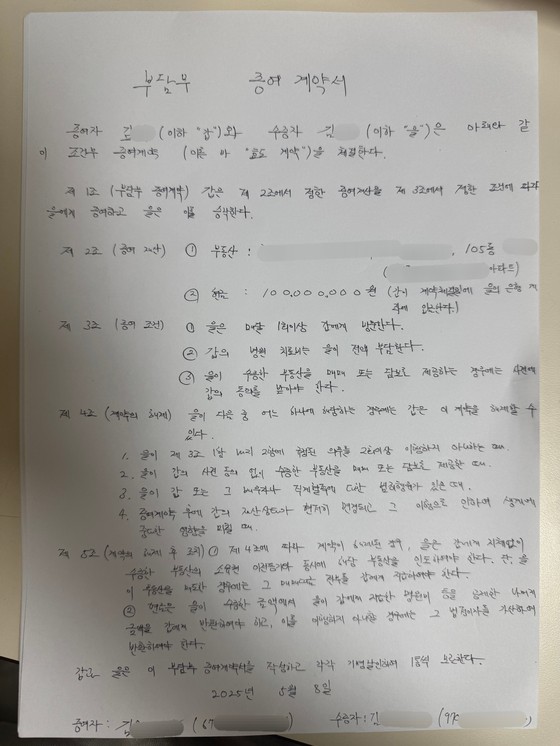 부담부 증여 계약서
증여자 김 (이하 "갑")와 수증자 김 (이하 "을")은 아래와 같
이 조건부 증여계약 (이른 바 "효도 계약")을 체결한다.
제 1조 (부담부 증여계약) 갑은 제 2조에서 정한 증여재산을 제 3조에서 정한 조건에 따라
을에게 증여하고 을은 이를 승낙한다.
제 2조 (증여 재산) ① 부동산 : , 105동
( 아파트)
② 현금 : 100,000,000원 (갑이 계약체결일에 을의 은행 계
좌에 입금한다.)
제 3조 (증여 조건) ① 을은 매달 1회이상 갑에게 방문한다.
② 갑의 병원 치료비는 을이 전액 부담한다.
③ 을이 수증한 부동산을 매매 또는 담보로 제공하는 경우에는 사전에
갑의 동의를 받아야 한다.
제 4조 (계약의 해제) 을이 다음 중 어느 하나에 해당하는 경우에는 갑은 이 계약을 해제할 수
있다.
1. 을이 제 3조 1항 내지 2항에 규정된 의무를 2회이상 이행하지 아니하는 때.
2. 을이 갑의 사전 동의 없이 수증한 부동산을 매매 또는 담보로 제공한 때.
3. 을이 갑 또는 그 배우자나 직계혈족에 대한 범죄행위가 있은 때.
4. 증여계약 후에 갑의 재산상태가 현저히 변경되고 그 이행으로 인하여 생계에
중대한 영향을 미칠 때.
제 5조 (계약의 해제 후 조치) ① 제 4조에 따라 계약이 해제된 경우, 을은 갑에게 지체없이
수증한 부동산의 소유권 이전등기와 동시에 해당 부동산을 인도하여야 한다. 단, 을
이 부동산을 매도한 경우에는 그 매매대금 전부를 갑에게 지급하여야 한다.
② 현금은 을이 수증한 금액에서 을이 갑에게 지출한 병원비 등을 공제한 나머지
금액을 갑에게 반환하여야 하고, 이를 이행하지 아니할 경우에는 그 법정이자를 가산하여
반환하여야 한다.
갑과 을은 이 부담부 증여계약서를 작성하고 각각 기명날인하여 1통씩 보관한다.
2025년 5월 8일
증여자 : 김 (67 ) 수증자 : 김 (97 )